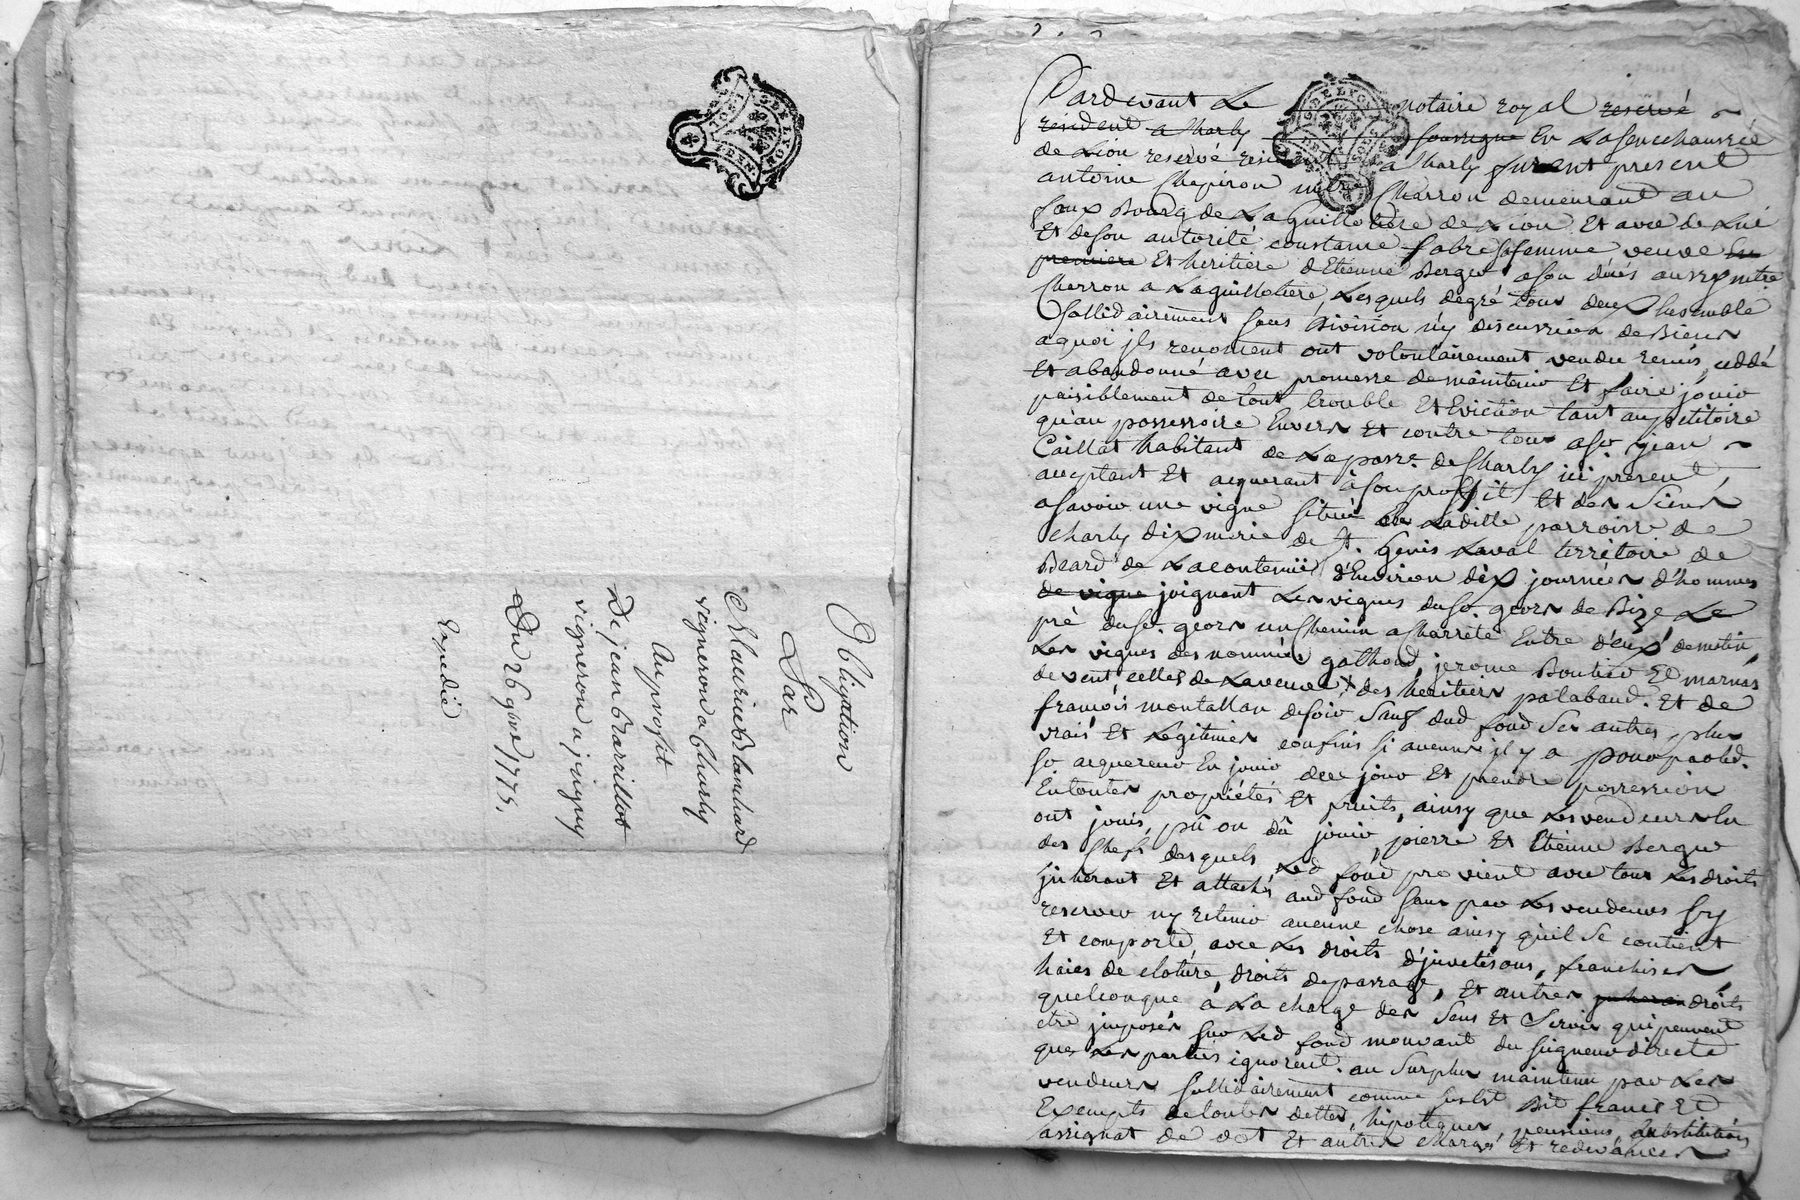 Obligation
Par
Maurice Blanchard
vigneron a Charly
Au profit
De jean Barrillot
vigneron a jrigny
Du 26 9bre 1775.
Expedié
Pardevant Le notaire royal reservé
résident a Charly soussigné En La senechaussée
de Lion reservé resident a Charly furent present
antoine Chapiron mtre Charron demeurant au
faux Bourg de La Guillotiere de Lion Et avec de Lui
Et de son autorité constance fabre sa femme veuve En
premiere Et heritiere d'Etienne Berger a son déces aussy mtre
Charron a La guillotiere, Lesquels de gré tous deux Ensemble
sollidairement sans division n'y discussion de Biens
a quoi jls renoncent ont volontairement vendu remis, ceddé
Et abandonné avec promesse de maintenir Et faire jouir
paisiblement de tout trouble Et Eviction tant au petitoire
qu'au possessoire Envers Et contre tous a sr. jean
Caillat habitant de La parre. de Charly ici present,
acceptant Et acquerant à son proffit Et des Siens
a savoir une vigne situé en Laditte parroisse de
Charly dixmerie de St. Genis Laval territoire de
Beard de La contenüe d'Environ dix journées d'hommes
de vigne joignant Les vignes du sr. geors de Bize Le
pré du sr. geors un Chemin a Charrete Entre d'eux de matin,
Les vignes des nommés gathond, jerome Boutier Et marnas
de vent, celles de La veuve & des heritiers palabaud. Et de
francois montallan de soir sauf dud fond ses autres, plus
vrais Et Legitimes confins si aucuns jl y a pour par led.
sr acquereur En jouir dee jour Et prendre possession
En toutes propriétés Et fruits, ainsy que Les vendeurs En
ont jouis, pû ou dû jouir, pierre Et Etienne Berger
des Chefs desquels Led fond provient avec tous Les droits
jnherant Et attachés aud fond sans par Les vendeurs s'y
reserver ny retenir aucune chose ainsy qu'il se contient
Et comporte, avec Les droits d'juvetisons, franchises
haies de cloture, droits de passage, Et autres droits
quelconque à La charge des Sens Et Servis qui peuvent
etre jmposés sur Led fond mouvant du seigneur directe
que Les parties ignorent. au surplus maintenu par Les
vendeurs sollidairement comme susdt dit franc Et
Exempts de toutes dettes, hipoteques, pensions, substitutions
assignat de dot Et autres charges Et redevances